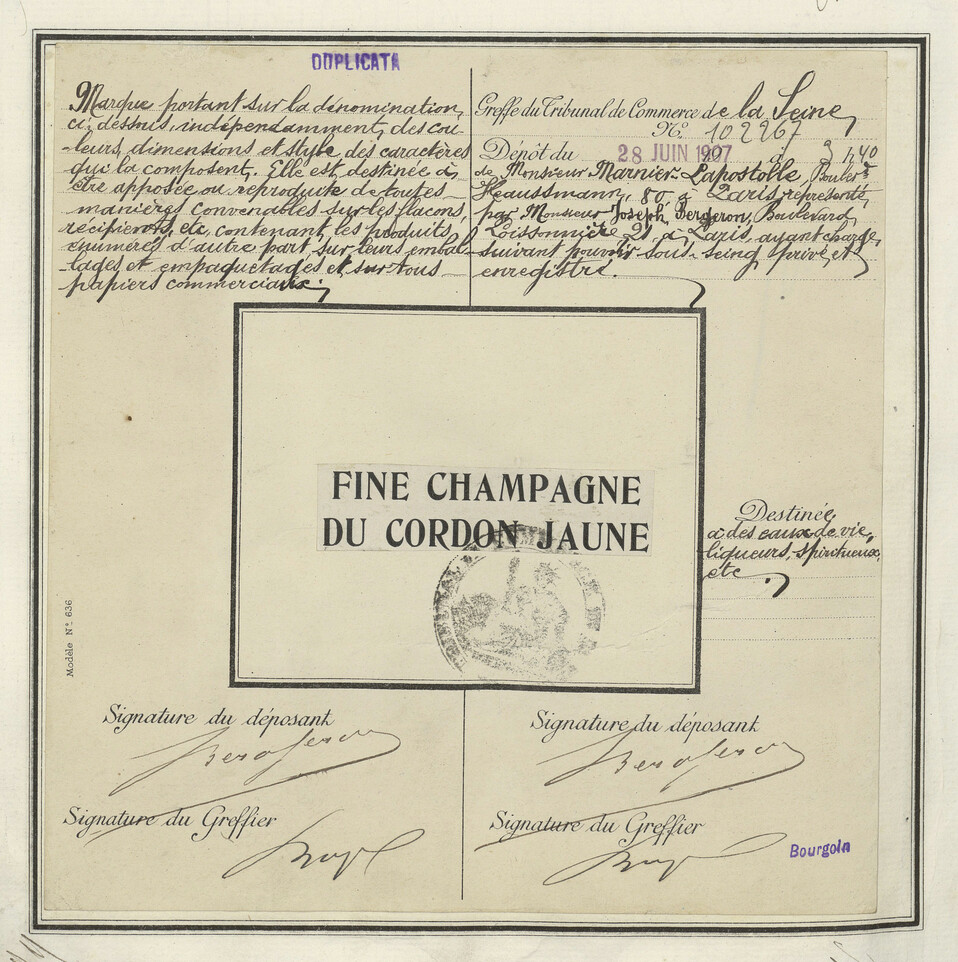 DUPLICATA
Marque portant sur la dénomination
ci-dessous, indépendamment des cou-
leurs, dimensions et style des caractères
qui la composent. Elle est destinée à
être apposée ou reproduite de toutes
manières convenables sur les flacons,
récipients, etc, contenant les produits
énumérés d'autre part, sur leurs embal-
lages et empaquetages et sur tous
papiers commerciaux.
Greffe du Tribunal de Commerce de la Seine
N° 102267
Dépôt du 28 JUIN 1907 à 3 h 40
de Monsieur Marnier-Lapostolle, Boulevd
Haussmann, 80, à Paris, représenté
par Monsieur Joseph Bergeron, Boulevard
Poissonnière 21, à Paris, ayant charge
suivant pouvoir sous-seing privé, et
enregistré.
FINE CHAMPAGNE
DU CORDON JAUNE
Destinée
à des eaux de vie,
liqueurs, spiritueux,
etc.
Modèle N° 636
Signature du déposant
Bergeron
Signature du Greffier
Signature du déposant
Bergeron
Signature du Greffier
Bourgoin